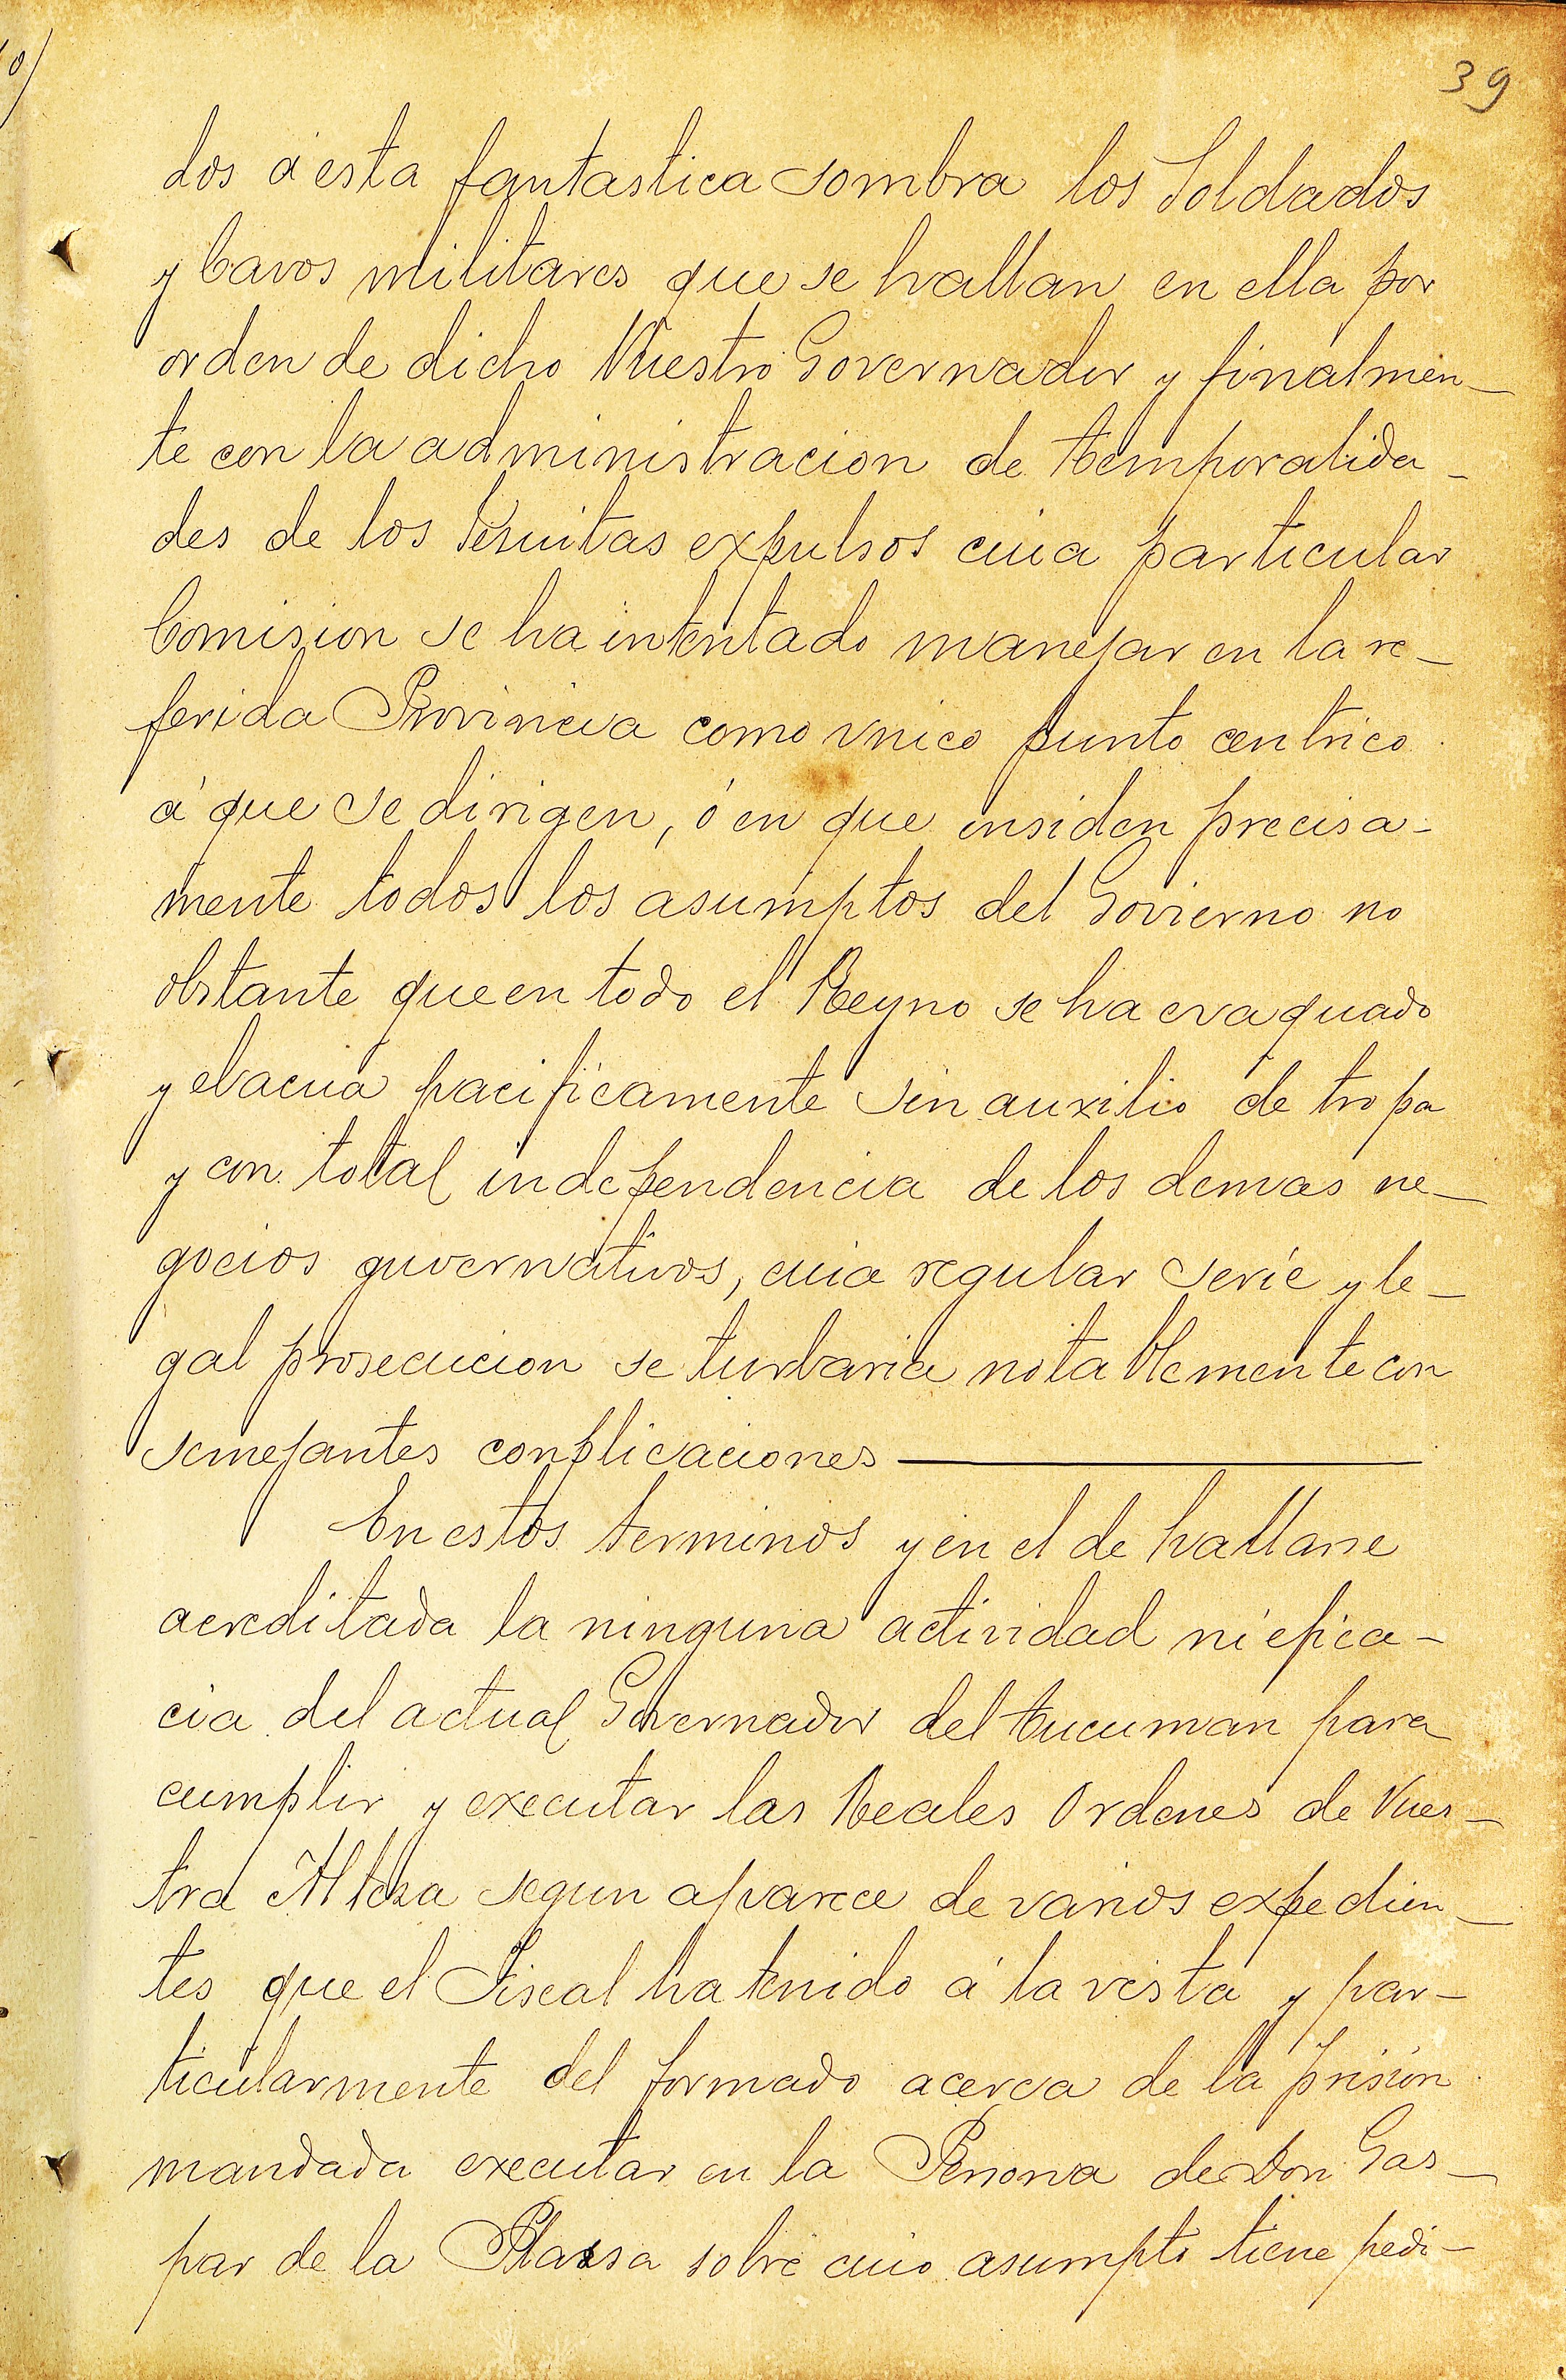 39
dos á esta fantastica sombra los Soldados
y Cavos militares que se hallan en ella por
orden de dicho Vuestro Governador y finalmen-
te con la administracion de temporalida-
des de los Jesuitas expulsos cuia particular
Comision se ha intentado manejar en la re-
ferida Provincia como vnico punto centrico
á que se dirigen, ó en que insiden precisa-
mente todos los asumptos del Govierno no
obstante que en todo el Reyno se ha evaquado
y evacua pacificamente sin auxilio de tropa
y con total independencia de los demas ne-
gocios guvernativos, cuia regular serie y le-
gal prosecucion se turbaria notablemente con
semejantes conplicaciones
En estos terminos y en el de hallarse
acreditada la ninguna actividad ni efica-
cia del actual Governador del tucuman para
cumplir y executar las Reales Ordenes de Vues-
tra Alteza segun aparece de varios expedien-
tes que el Fiscal ha tenido á la vista y par-
ticularmente del formado acerca de la prision
mandada executar en la Persona de Don Gas-
par de la Plassa sobre cuio asumpto tiene pedi-